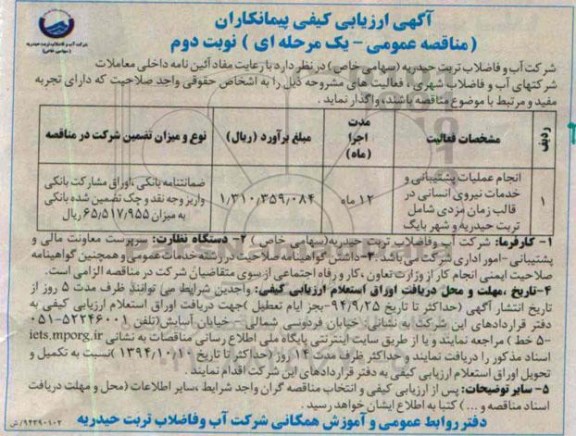 آگهی ارزیابی کیفی پیمانکاران
(مناقصه عمومی - یک مرحله ای) نوبت دوم
شرکت آب و فاضلاب تربت حیدریه
(سهامی خاص)
شرکت آب و فاضلاب تربت حیدریه (سهامی خاص) در نظر دارد با رعایت مفاد آئین نامه داخلی معاملات
شرکتهای آب و فاضلاب شهری، فعالیت های مشروحه ذیل را به اشخاص حقوقی واجد صلاحیت که دارای تجربه
مفید و مرتبط با موضوع مناقصه باشند، واگذار نماید.
ردیف | مشخصات فعالیت | مدت اجرا (ماه) | مبلغ برآورد (ریال) | نوع و میزان تضمین شرکت در مناقصه
۱ | انجام عملیات پشتیبانی و خدمات نیروی انسانی در قالب زمان مزدی شامل تربت حیدریه و شهر بایگ | ۱۲ ماه | ۱/۳۱۰/۳۵۹/۰۸۴ | ضمانتنامه بانکی، اوراق مشارکت بانکی واریز وجه نقد و چک تضمین شده بانکی به میزان ۶۵/۵۱۷/۹۵۵ ریال
۱- کارفرما: شرکت آب وفاضلاب تربت حیدریه(سهامی خاص) ۲- دستگاه نظارت: سرپرست معاونت مالی و
پشتیبانی -امور اداری شرکت می باشد. ۳- داشتن گواهینامه صلاحیت در رشته خدمات عمومی و همچنین گواهینامه
صلاحیت ایمنی انجام کار از وزارت تعاون، کار و رفاه اجتماعی از سوی متقاضیان شرکت در مناقصه الزامی است.
۴-تاریخ، مهلت و محل دریافت اوراق استعلام ارزیابی کیفی: واجدین شرایط می توانند ظرف مدت ۵ روز از
تاریخ انتشار آگهی (حداکثر تا تاریخ ۹۴/۹/۲۵-بجز ایام تعطیل) جهت دریافت اوراق استعلام ارزیابی کیفی به
دفتر قراردادهای این شرکت به نشانی: خیابان فردوسی شمالی - خیابان آسایش(تلفن ۵۲۲۴۶۰۰۱-۰۵۱
-۵ خط) مراجعه نمایند و یا از طریق سایت اینترنتی پایگاه ملی اطلاع رسانی مناقصات به نشانی iets.mporg.ir
اسناد مذکور را دریافت نمایند و حداکثر ظرف مدت ۱۴ روز (حداکثر تا تاریخ ۱۳۹۴/۱۰/۱۰) نسبت به تکمیل و
تحویل اوراق استعلام ارزیابی کیفی به دفتر قراردادهای این شرکت اقدام نمایند.
۵- سایر توضیحات: پس از ارزیابی کیفی و انتخاب مناقصه گران واجد شرایط، سایر اطلاعات (محل و مهلت دریافت
اسناد مناقصه و ...) کتبا به اطلاع ایشان خواهد رسید.
دفتر روابط عمومی و آموزش همگانی شرکت آب وفاضلاب تربت حیدریه
۹۴۳۹۰۱۰۲/ش